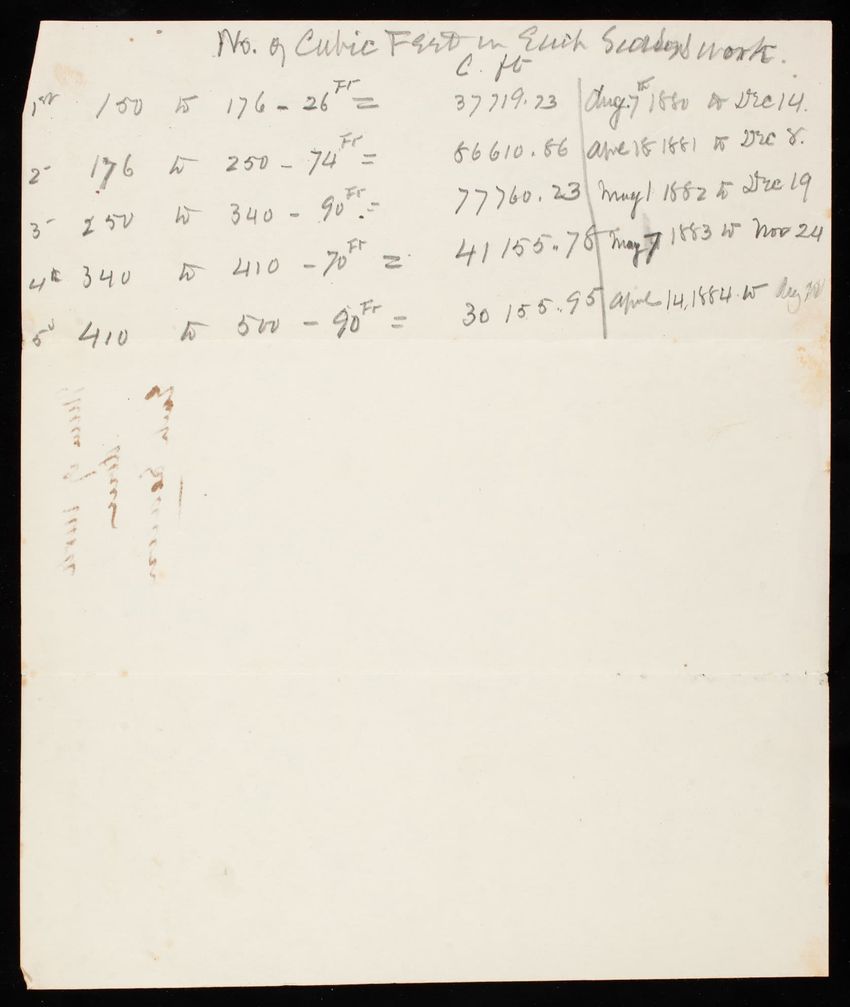 No. of Cubic Feet in Each Seasons work.
C. ft
1st 150 to 176 - 26 Ft = 37719.23 Aug. 7th 1880 to Dec 14.
2d 176 to 250 - 74 Ft = 86610.86 April 18 1881 to Dec 8.
3d 250 to 340 - 90 Ft. = 77760.23 May 1 1882 to Dec 19
4th 340 to 410 - 70 Ft = 41155.78 May 7 1883 to Nov 24
5th 410 to 500 - 90 Ft = 30155.95 April 14, 1884 to Aug